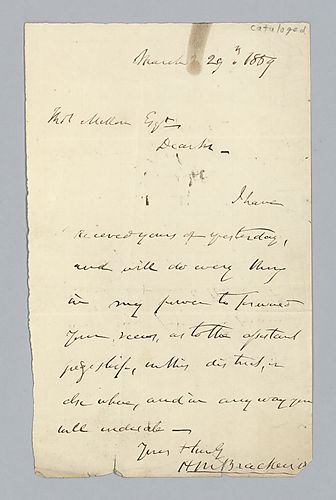 cataloged
March 29th 1869
Thos Mellon Esqr
Dear Sir –
I have
received yours of yesterday,
and will do every thing
in my power to forward
your views, as to the
in this district, or
else where, and in any way you
will indicate –
Yours truly
H M Brackenri